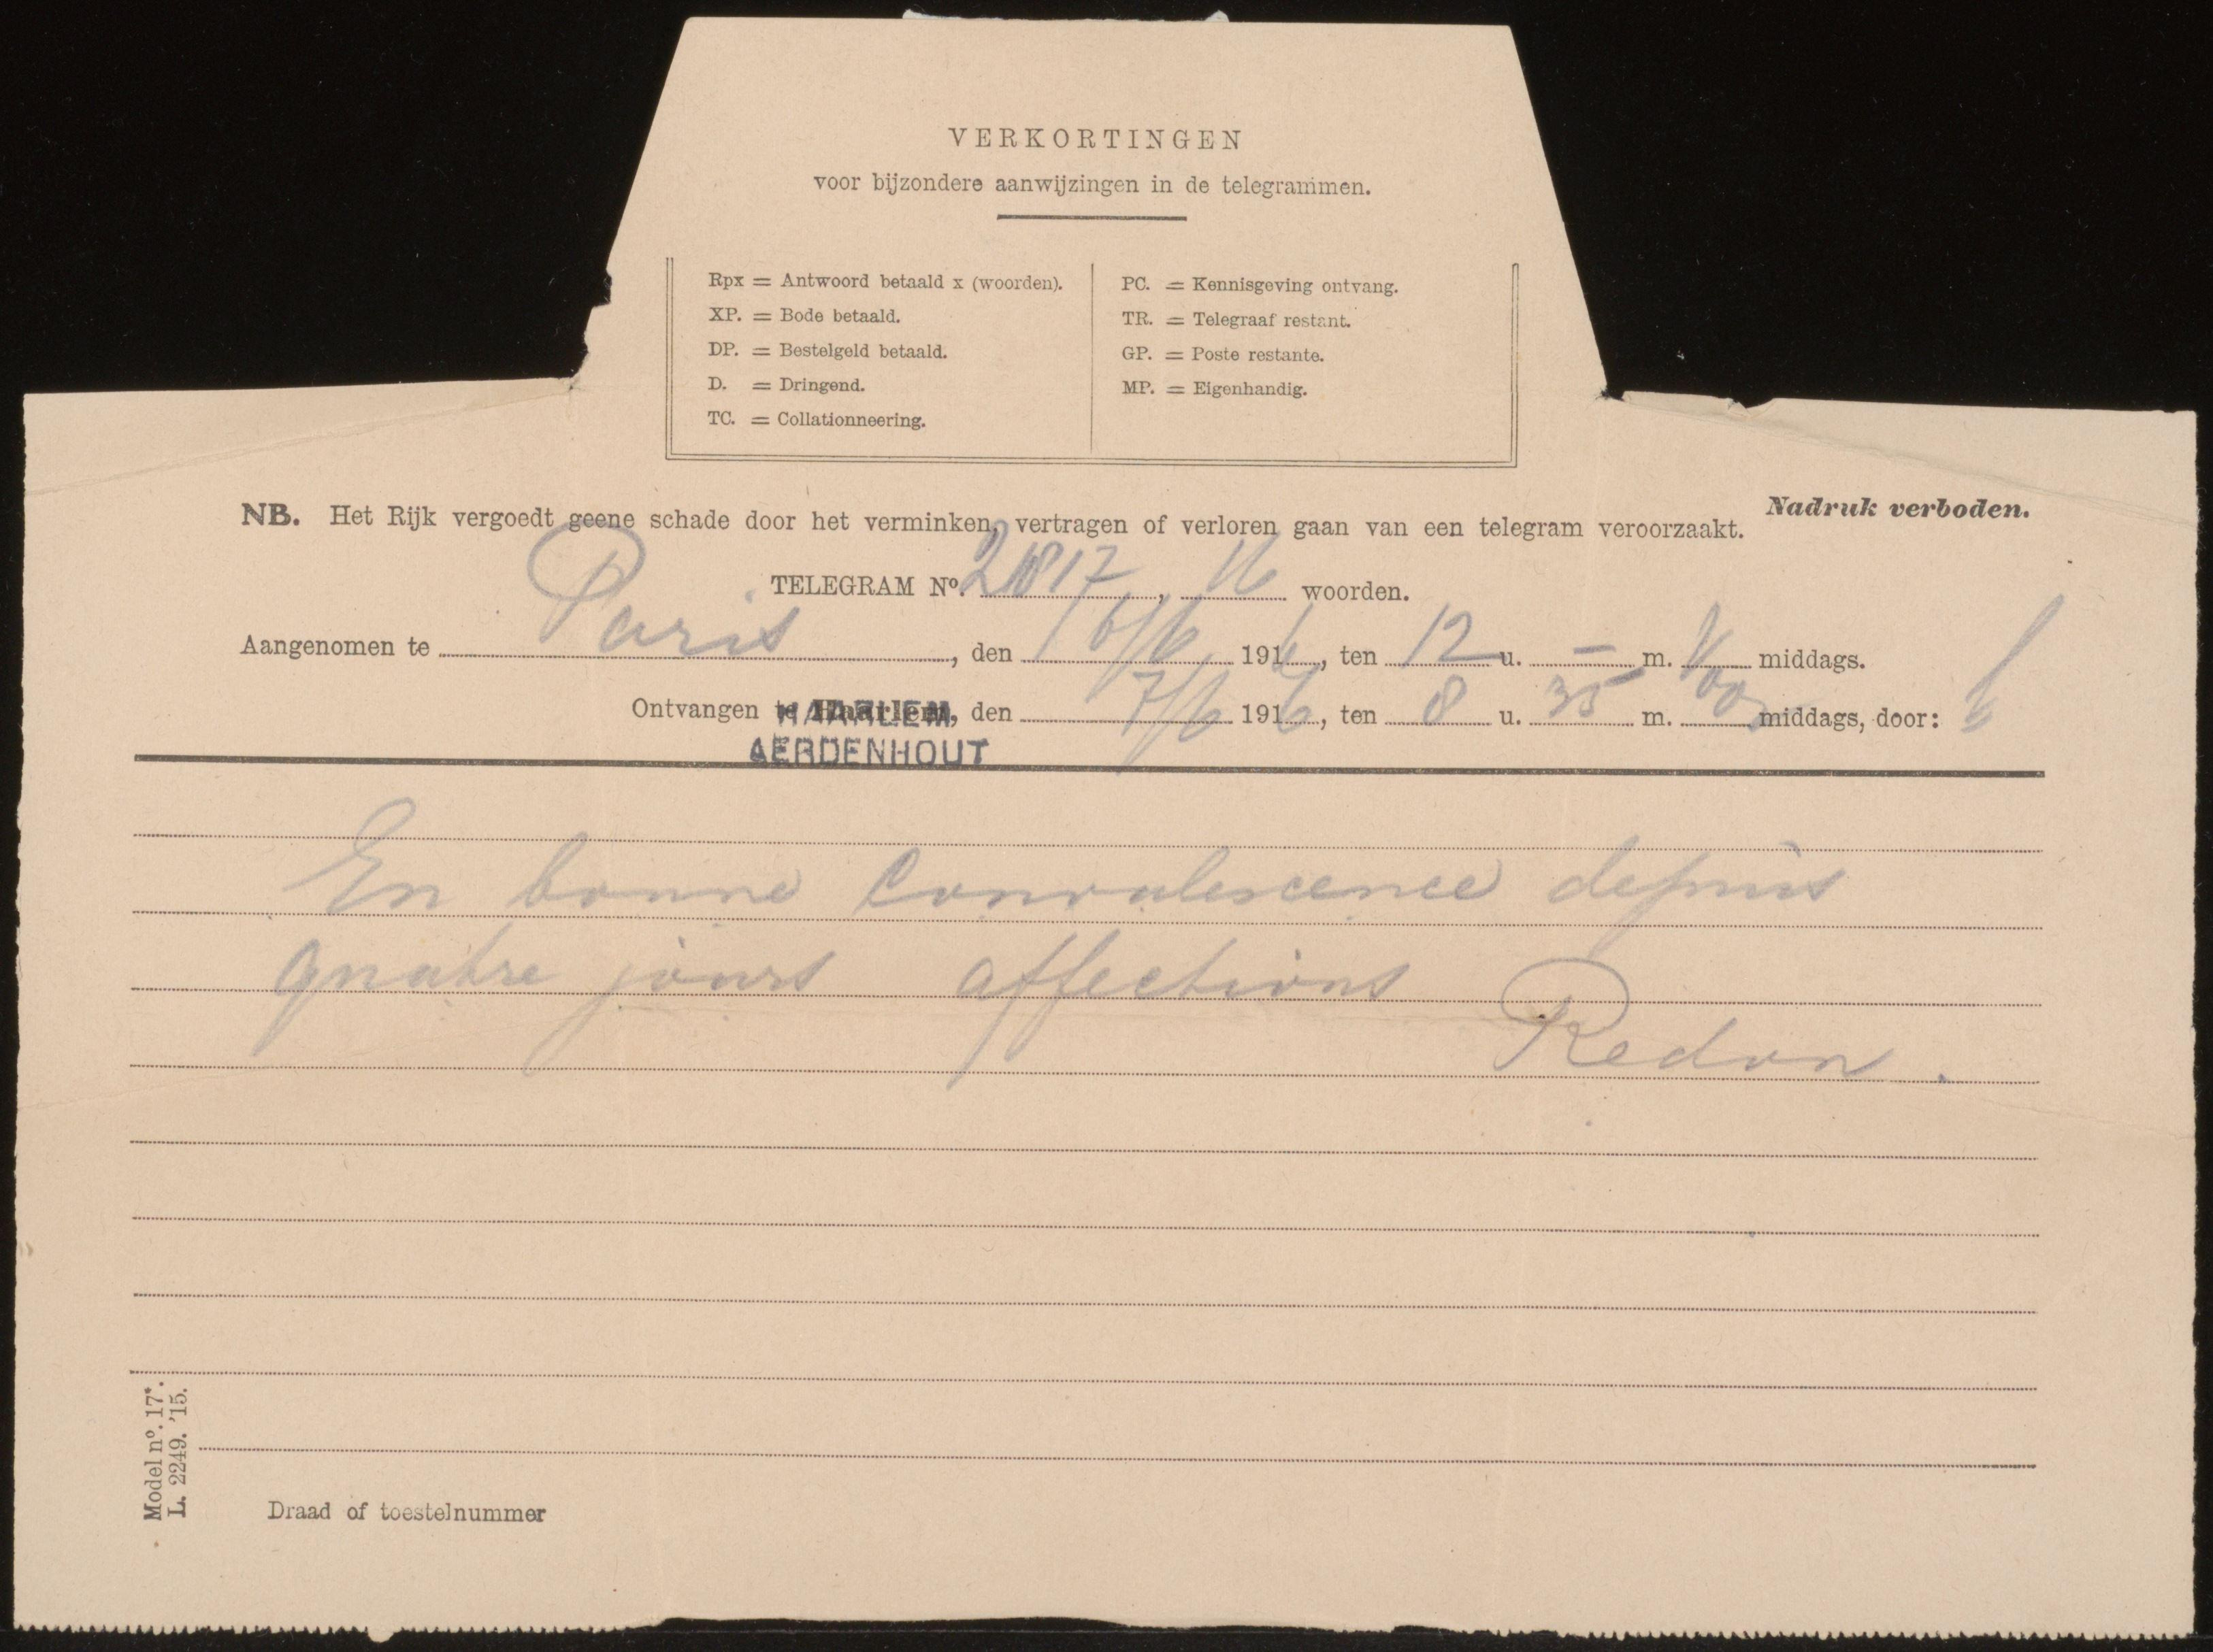 VERKORTINGEN
voor bijzondere aanwijzingen in de telegrammen.
Rpx = Antwoord betaald x (woorden).
XP. = Bode betaald.
DP. = Bestelgeld betaald.
D. = Dringend.
TC. = Collationneering.
PC. = Kennisgeving ontvang.
TR. = Telegraaf restant.
GP. = Poste restante.
MP. = Eigenhandig.
Nadruk verboden.
NB. Het Rijk vergoedt geene schade door het verminken, vertragen of verloren gaan van een telegram veroorzaakt.
TELEGRAM Nº. 16 woorden.
Aangenomen te Paris, den 6/6 1916, ten 12 u. — m. middags.
Ontvangen te Haarlem, den 7/6 1916, ten 8 u. 35 m. middags, door:
HAARLEM
AERDENHOUT
En bonne convalescence depuis
quatre jours affections
Redon.
Model nº. 17*.
L. 2249. '15.
Draad of toestelnummer